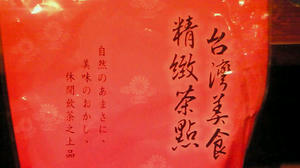 台灣美食
精緻茶點
自然のあまさに、
美味のおかし、
休閒飲茶之上品